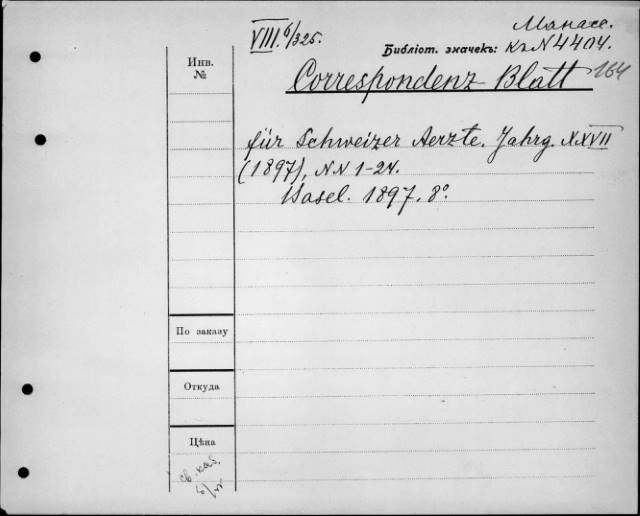 VIII.6/325.
Манасе.
Библіот. значекъ: Къ N 4404.
Инв. №
Correspondenz-Blatt 164
für Schweizer Aerzte. Jahrg. XXVII
(1897), N N 1-24.
Basel. 1897. 8°.
По заказу
Откуда
Цѣна